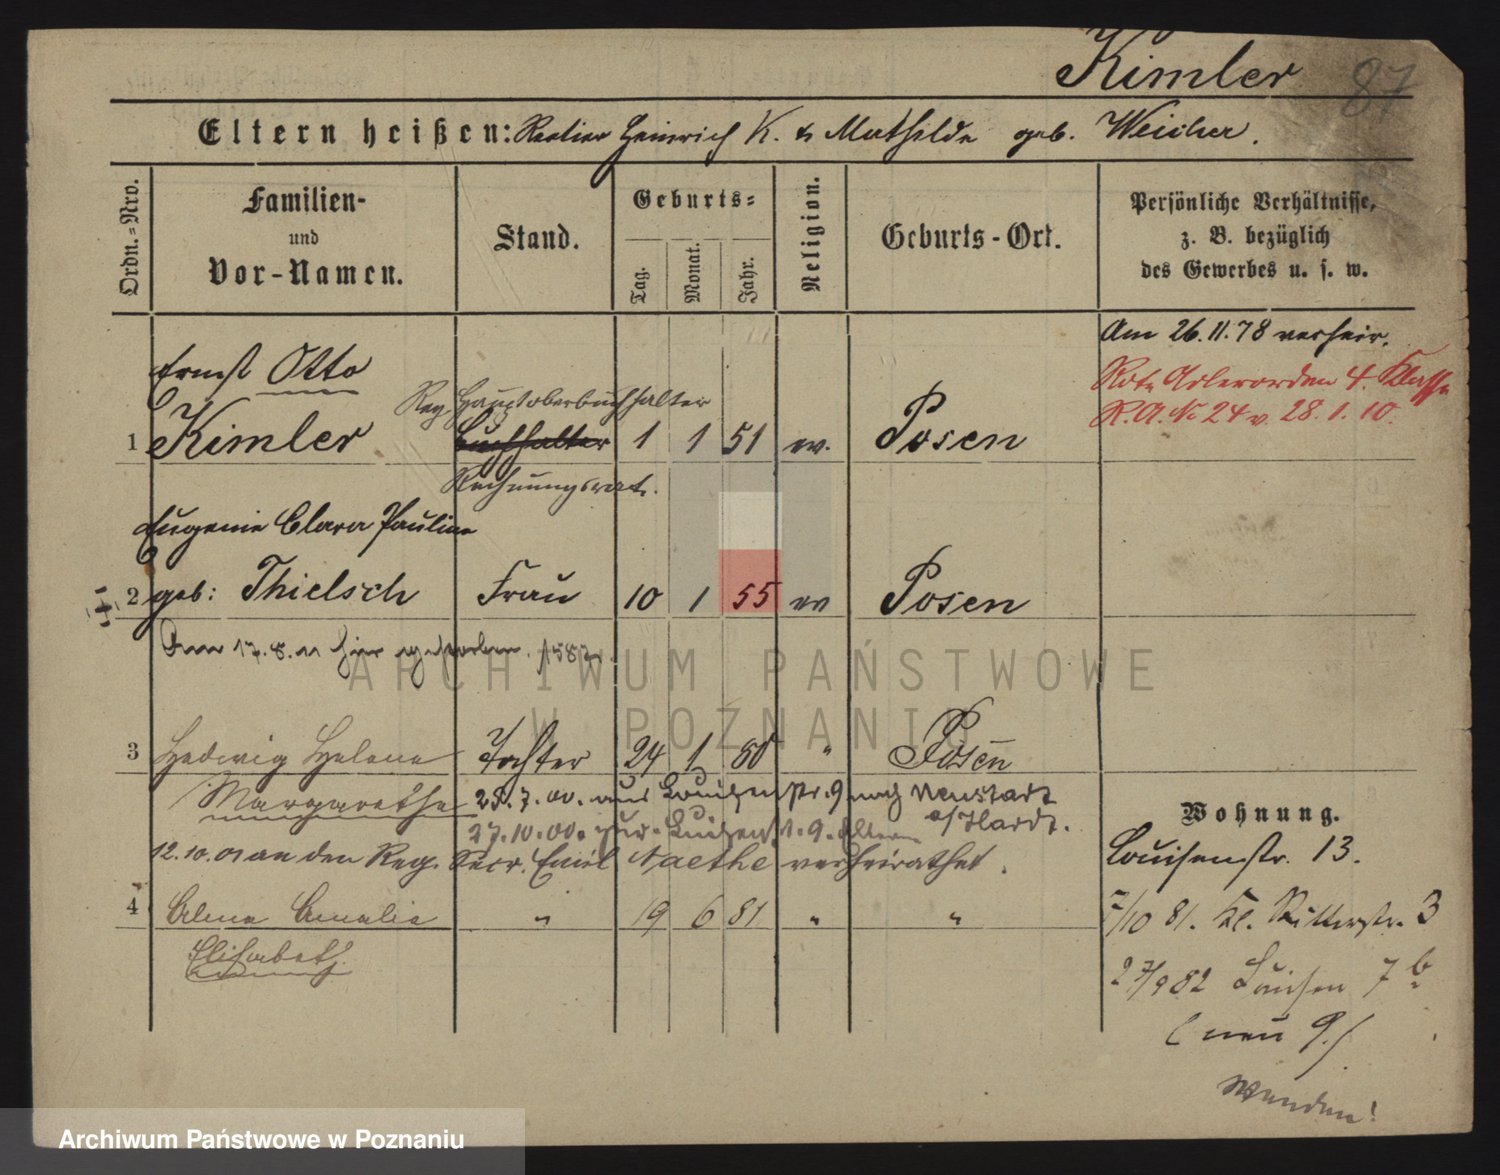 Kimler 87
Eltern heißen: Rentier Heinrich K. & Mathilde geb. Weicher.
Ordn.-Nro.
Familien- und Vor-Namen.
Stand.
Geburts-
Tag. Monat. Jahr.
Religion.
Geburts-Ort.
Persönliche Verhältnisse, z. B. bezüglich des Gewerbes u. s. w.
Am 26.11.78 verheir.
Rote Adlerorden 4. Klasse
R.A. № 24 v. 28.1.10.
Ernst Otto
Reg. Hauptoberbuchhalter
1 Kimler Buchhalter 1 1 51 ev. Posen
Rechnungsrat.
Eugenie Clara Pauline
2 geb: Thielsch Frau 10 1 55 ev Posen
Am 17.8.11 hier gestorben.
ARCHIWUM PAŃSTWOWE
W POZNANIU
3 Hedwig Helene Tochter 24 1 80 " Posen
Margarethe 25.7.00. aus Louisenstr. 9 nach Neustadt
a/Hardt.
27.10.00. zur. Luisenst. 9. Eltern
12.10.01 an den Reg. Secr. Emil Naethe verheirathet.
4 Alma Amalie " 19 6 81 " "
Elisabeth
Wohnung.
Louisenstr. 13.
5/10 81. Kl. Ritterstr. 3
27/9 82 Luisen 7b
(neu 9.)
Wenden!
Archiwum Państwowe w Poznaniu